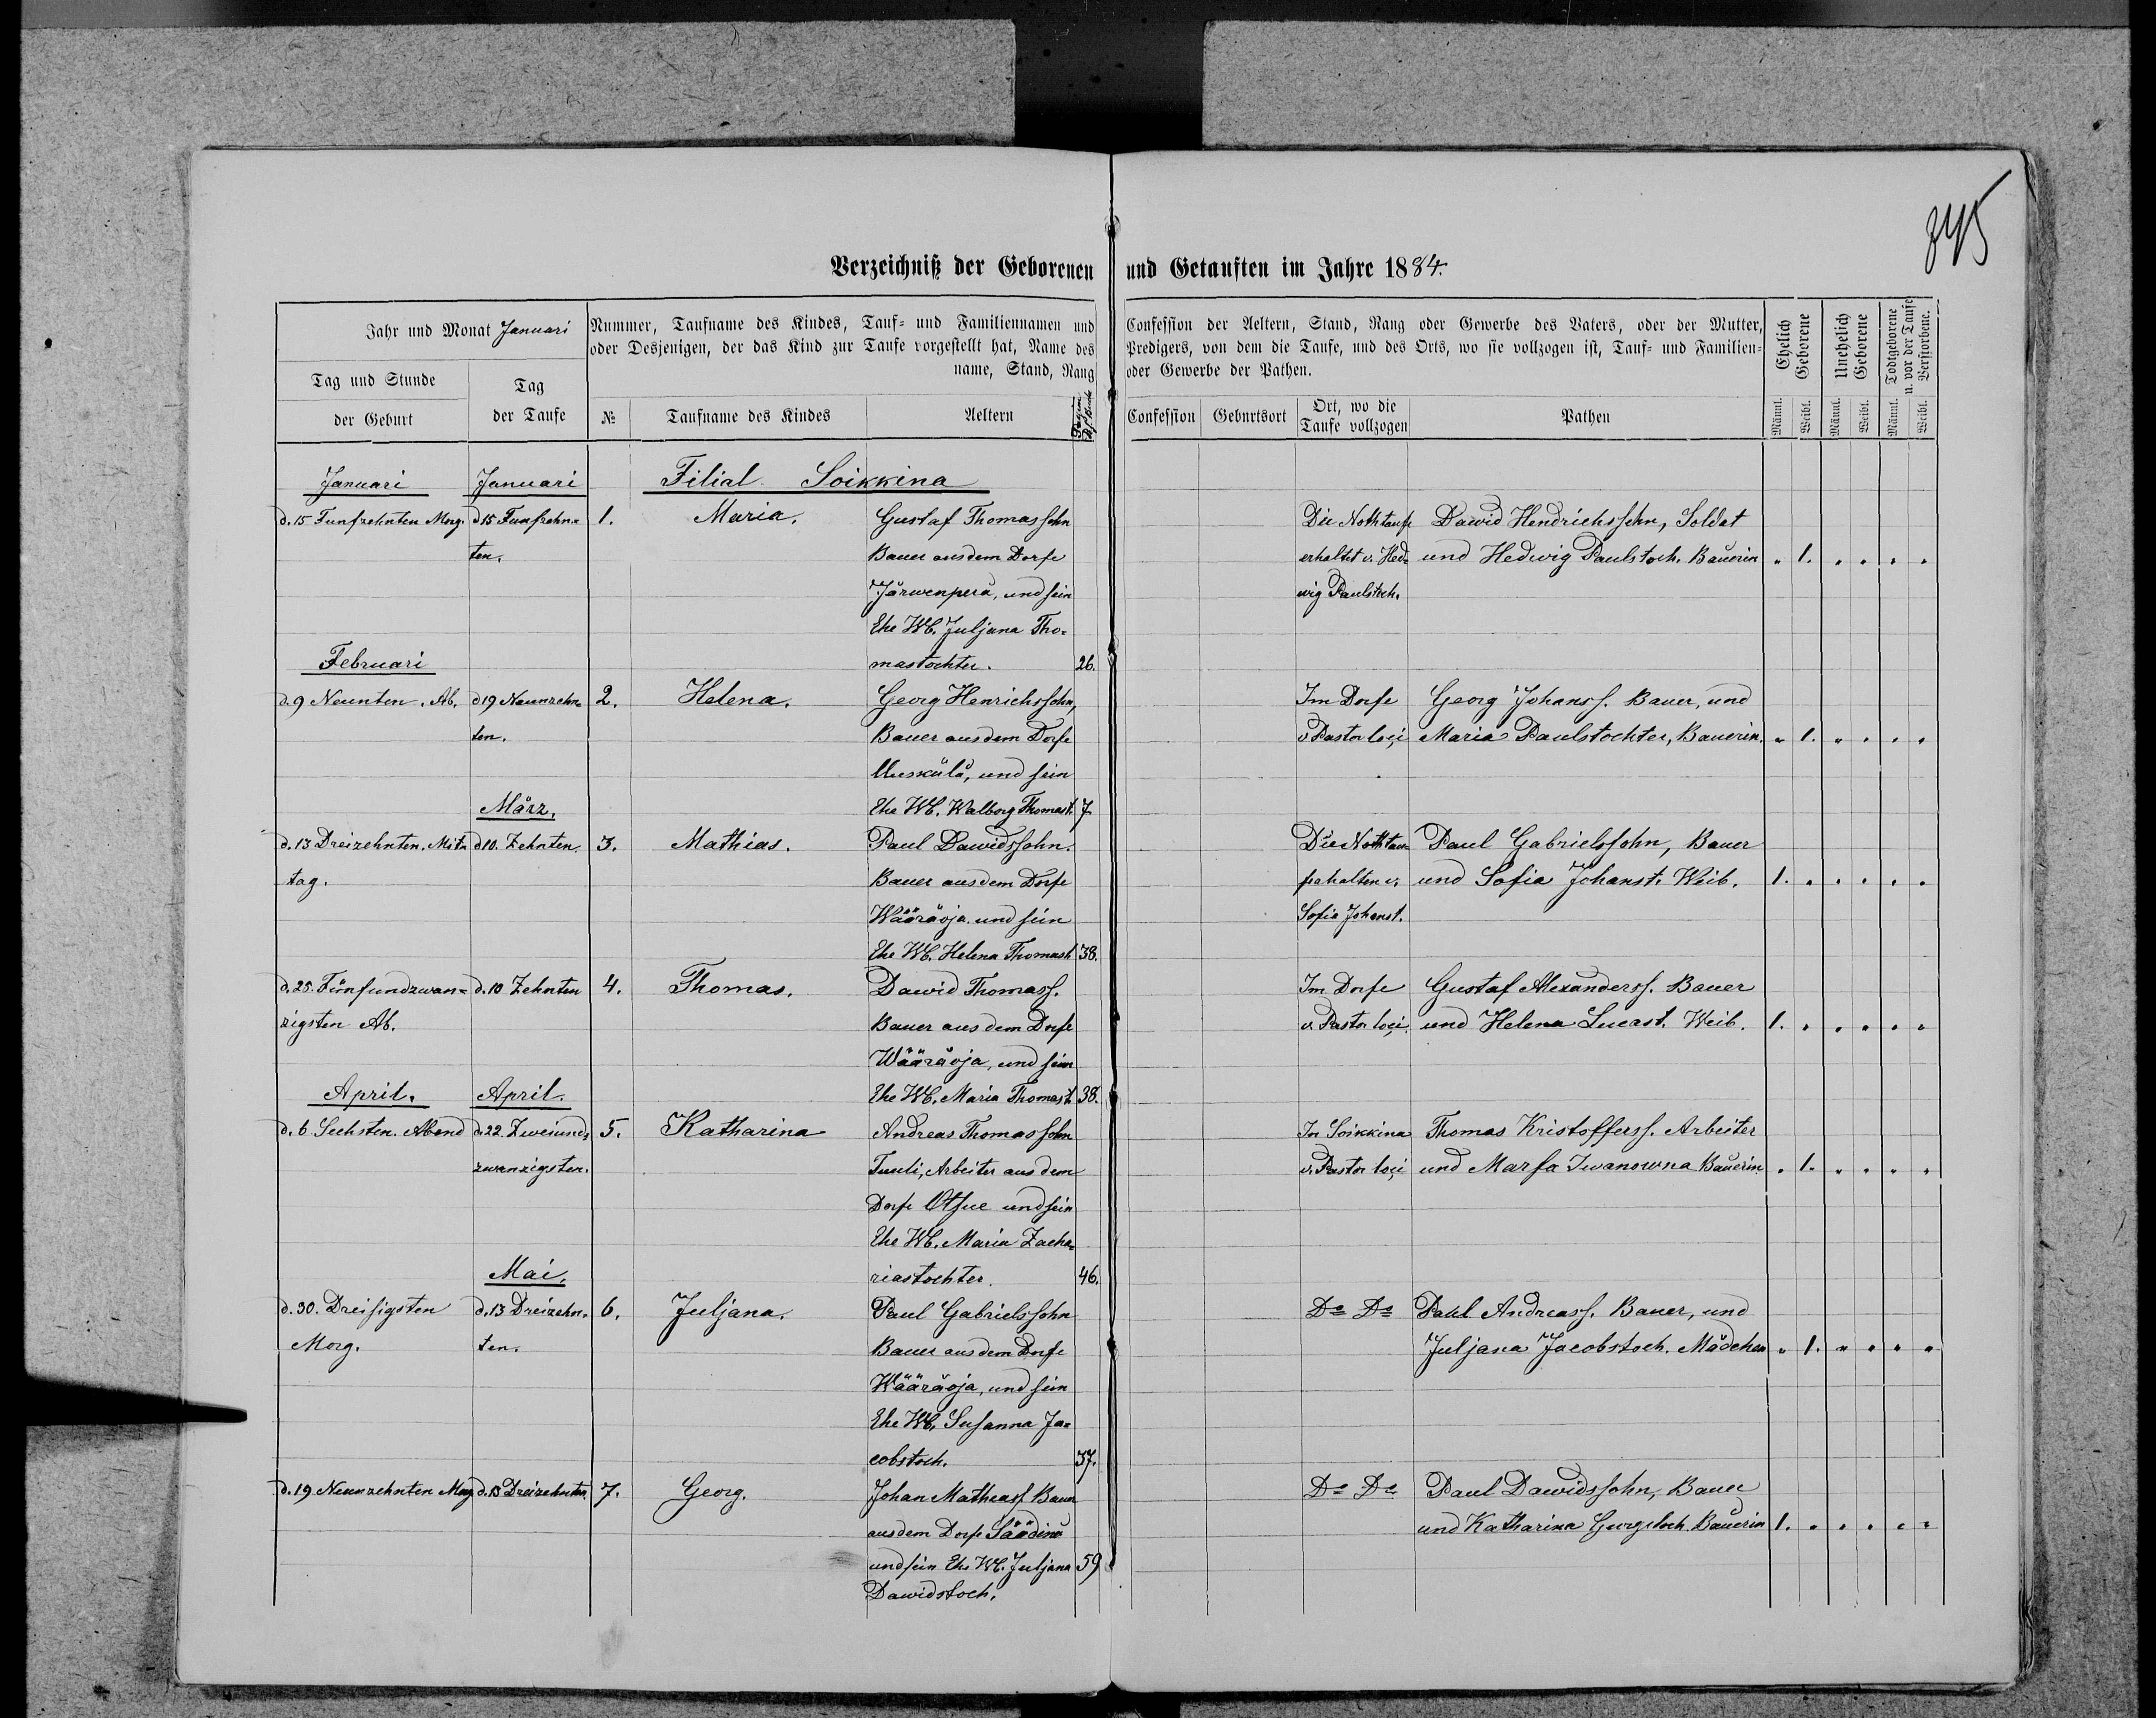 845
Verzeichniß der Geborenen und Getauften im Jahre 1884.
Jahr und Monat Januari
Nummer, Taufname des Kindes, Tauf- und Familiennamen und
oder Desjenigen, der das Kind zur Taufe vorgestellt hat, Name des
name, Stand, Rang
Confession der Aeltern, Stand, Rang oder Gewerbe des Vaters, oder der Mutter,
Predigers, von dem die Taufe, und des Orts, wo sie vollzogen ist, Tauf- und Familien-
oder Gewerbe der Pathen.
Ehelich Geborene
Unehelich Geborene
Todtgeborene u. vor der Taufe Verstorbene.
Tag und Stunde
der Geburt
Tag
der Taufe
№
Taufname des Kindes
Aeltern
Confession
Geburtsort
Ort, wo die
Taufe vollzogen
Pathen
Männl. Weibl. Männl. Weibl. Männl. Weibl.
Januari Januari Filial Soikkina
d. 15 Funfzehnten Morg. d 15 Funfzehn= 1. Maria. Gustaf Thomassohn Die Nothtaufe Dawid Hendrichssohn, Soldat
ten. Bauer aus dem Dorfe erhaltet v. Hed= und Hedwig Paulstoch. Bauerin " 1. " " " "
Järwenperä, und sein wig Paulstoch.
Ehe Wb. Juljana Tho=
Februari mastochter. 26.
d. 9 Neunten. Ab. d 19 Neunzehn= 2. Helena. Georg Henrichssohn, Im Dorfe Georg Johanss. Bauer, und
ten. Bauer aus dem Dorfe v Pastor loci Maria Paulstochter, Bauerin. " 1. " " " "
Uuskülä, und sein
März. Ehe Wb. Walborg Thomast. 7.
d. 13 Dreizehnten. Mit= d 10. Zehnten. 3. Mathias. Paul Dawidssohn. Die Nothtau= Paul Gabrielssohn, Bauer
tag. Bauer aus dem Dorfe fe halten v. und Sofia Johanst. Weib. 1. " " " " "
Wääräoja und sein Sofia Johanst.
Ehe Wb. Helena Thomast. 38.
d. 25. Fünfundzwan= d. 10 Zehnten 4. Thomas. Dawid Thomass. Im Dorfe Gustaf Alexanderss. Bauer
zigsten Ab. Bauer aus dem Dorfe v. Pastor loci. und Helena Lucast. Weib. 1. " " " " "
Wääräoja, und sein
April. April. Ehe Wb. Maria Thomast. 38.
d. 6 Sechsten. Abend d. 22. Zweiund= 5. Katharina Andreas Thomassohn In Soikkina Thomas Kristofferss. Arbeiter
zwanzigsten. Tuuli, Arbeiter aus dem v. Pastor loci und Marfa Iwanowna Bauerin " 1. " " " "
Dorfe Otsue und sein
Ehe Wb. Maria Zacha=
Mai. riastochter. 46.
d. 30. Dreisigsten d. 13 Dreizehn= 6. Juljana. Paul Gabrielssohn Do Do Paul Andreass. Bauer, und
Morg. ten. Bauer aus dem Dorfe Juljana Jacobstoch. Mädchen " 1. " " " "
Wääräoja, und sein
Ehe Wb. Susanna Ja=
cobstoch. 37.
d. 19 Neunzehnten Morg d. 13 Dreizehnten 7. Georg. Johan Matheass. Bauer Do Do Paul Dawidssohn, Bauer
aus dem Dorfe Säädinä und Katharina Georgstoch. Bauerin 1. " " " " "
und sein Ehe Wb. Juljana 59
Dawidstoch.